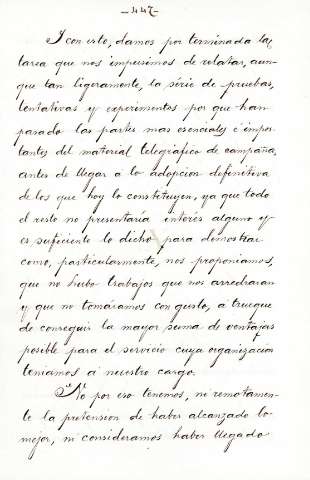 -447-
I con esto, damos por terminada la
tarea que nos impusimos de relatar, aun-
que tan ligeramente, la série de pruebas,
tentativas y experimentos por que han
pasado las partes mas esenciales é impor-
tantes del material telegráfico de campaña,
antes de llegar a lo adopcion definitiva
de los que hoy lo constituyen, ya que todo
el resto no presentaría interés alguno y
es suficiente lo dicho para demostrar
como, particularmente, nos proponíamos,
que no hubo trabajos que nos arredraran
y que no tomáramos con gusto, á trueque
de conseguir la mayor suma de ventajas
posible para el servicio cuya organizacion
teniamos á nuestro cargo.
No por eso tenemos, ni remotamen-
te la pretension de haber alcanzado lo
mejor, ni consideramos haber llegado